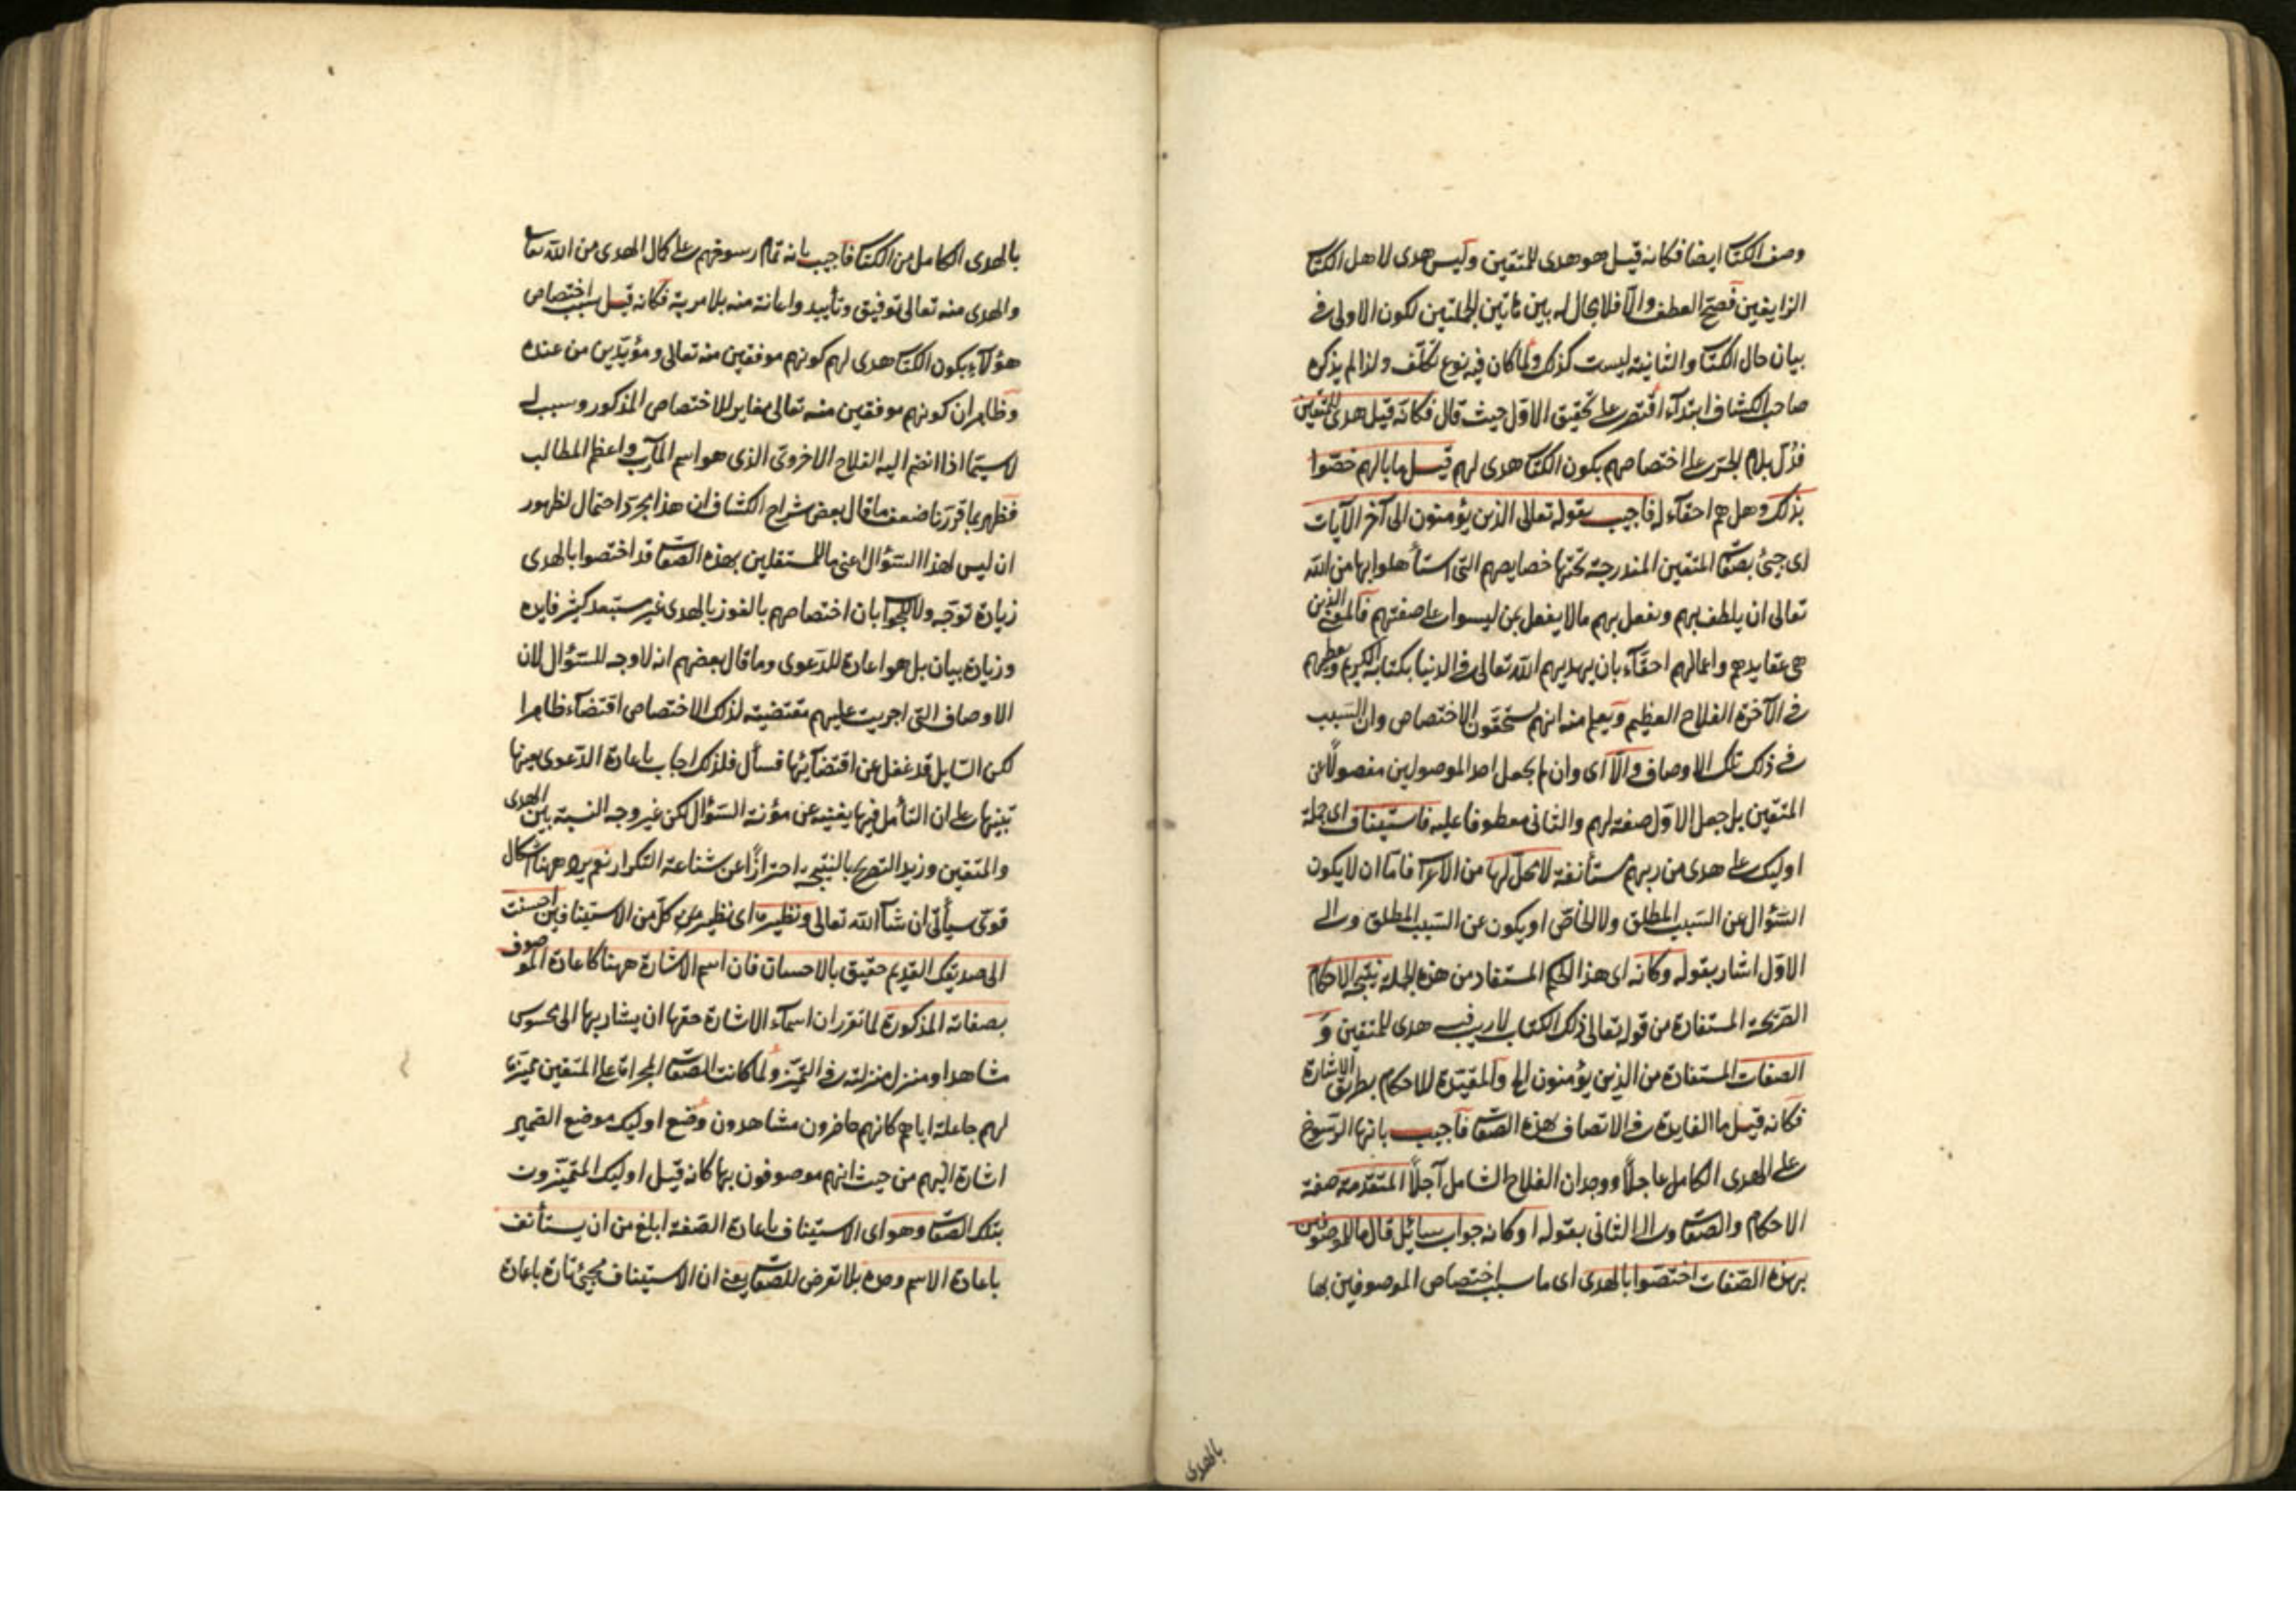 وصف الكتاب ايضا فكانه قيل هو هدى للمتقين وليس هدى لاهل الكتاب
الزايفين فصح العطف والا فلا مجال له بين هاتين الجملتين لكون الاولى في
بيان حال الكتاب والثانية ليست كذلك ولما كان فيه نوع تكلف ولذا لم يذكره
صاحب الكشاف ابتداء اقتصر على تحقيق الاول حيث قال فكانه قيل هدى للمتقين
فدل بلام الجر على اختصاصهم بكون الكتاب هدى لهم قيل ما بالهم خصوا
بذلك وهل هم احقاء له فاجيب بقوله تعالى الذين يؤمنون الى آخر الآيات
اى جئ بصفات المتقين المندرجة تحتها خصايصهم التى استأهلوا بها من الله
تعالى ان يلطف بهم ويفعل بهم ما لا يفعل بمن ليسوا على صفتهم فالمعنى الذين
هى عقايدهم واعمالهم احقاء بان يهديهم الله تعالى فى الدنيا بكتابه الكريم ويعطيهم
فى الآخرة الفلاح العظيم ويعلم منه انهم يستحقون الاختصاص وان السبب
فى ذلك تلك الاوصاف والا اى وان لم يجعل احد الموصولين مفصولا عن
المتقين بل جعل الاول صفة لهم والثانى معطوفا عليه فاستيناف اى جملة
اوليك على هدى من ربهم مستأنفة لا محل لها من الاعراب فاما ان لا يكون
السؤال عن السبب المطلق ولا الخاص او يكون عن السبب المطلق والى
الاول اشار بقوله وكانه اى هذا الحكم المستفاد من هذه الجملة نتيجة الاحكام
الصريحة المستفادة من قوله تعالى ذلك الكتاب لا ريب فيه هدى للمتقين و
الصفات المستفادة من الذين يؤمنون الخ والمقيدة للاحكام بطريق الاشارة
فكانه قيل ما الفايدة فى الاتصاف بهذه الصفات فاجيب بانها الرسوخ
على الهدى الكامل عاجلا ووجدان الفلاح الشامل آجلا المتقدمة صفة
الاحكام والصفات والى الثانى بقوله او كانه جواب سائل قال ما للموصوفين
بهذه الصفات اختصوا بالهدى اى ما سبب اختصاص الموصوفين بها
بالهدى
بالهدى الكامل من الكتاب فاجيب بانه تمام رسوخهم على كمال الهدى من الله تعا
والهدى منه تعالى توفيق وتأييد واعانة منه بلا مرية فكانه قيل سبب اختصاص
هؤلاء بكون الكتاب هدى لهم كونهم موفقين منه تعالى ومؤيدين من عنده
وظاهر ان كونهم موفقين منه تعالى مغاير للاختصاص المذكور وسبب له
لا سيما اذا انضم اليه الفلاح الاخروى الذى هو اسم المآرب واعظم المطالب
فظهر بما قررنا ضعف ما قال بعض شراح الكشاف ان هذا مجرد احتمال لظهور
ان ليس لهذا السؤال اعنى ما للمستقلين بهذه الصفات قد اختصوا بالهدى
زيادة توجه ولا للجواب بان اختصاصهم بالفوز بالهدى غير مستبعد كثير فايدة
وزيادة بيان بل هو اعادة للدعوى وما قال بعضهم انه لا وجه للسؤال لان
الاوصاف التى اجريت عليهم مقتضية لذلك الاختصاص اقتضاء ظاهرا
لكن السايل قد غفل عن اقتضائها فسأل فلذلك اجاب باعادة الدعوى بعينها
تنبيها على ان التأمل فيها يغنيه عن مؤنة السؤال لكن غير وجه النسبة بين الهدى
والمتقين وزيد التصريح بالنتيجة احترازا عن شناعة التكرار نعم يرد ههنا اشكال
قوى سيأتى ان شاء الله تعالى ونظيره اى نظير كل من الاستينافين احسنت
الى صديقك القديم حقيق بالاحسان فان اسم الاشارة ههنا كاعادة الموصوف
بصفاته المذكورة لما تقرر ان اسماء الاشارة حقها ان يشار بها الى محسوس
مشاهد او منزل منزلته فى التميز ولما كانت الصفات المجراة على المتقين مميزة
لهم جاعلة اياهم كانهم حاضرون مشاهدون وضع اوليك موضع الضمير
اشارة اليهم من حيث انهم موصوفون بها كانه قيل اوليك المتميزون
بتلك الصفات وهو اى الاستيناف باعادة الصفة ابلغ من ان يستأنف
باعادة الاسم وحده بلا تعرض للصفات يعنى ان الاستيناف يجيئ تارة باعادة